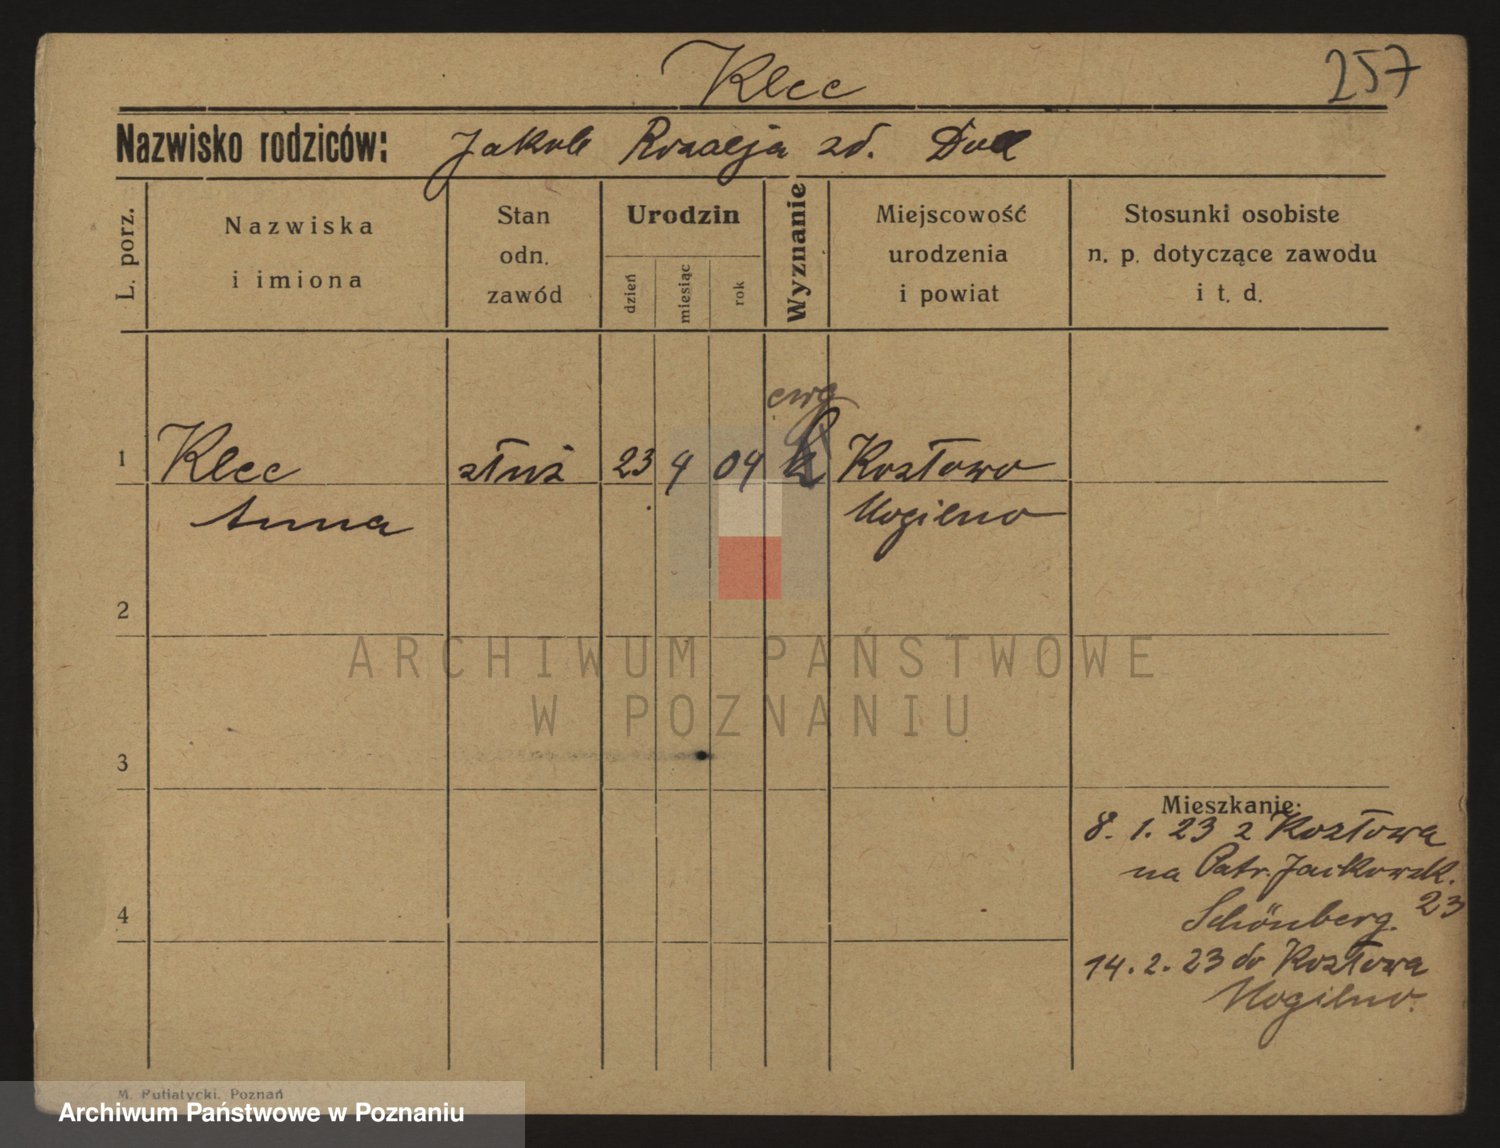 Klec
257
Nazwisko rodziców: Jakob Rozalja zd.
L. porz.
Nazwiska i imiona
Stan odn. zawód
Urodzin
dzień
miesiąc
rok
Wyznanie
Miejscowość urodzenia i powiat
Stosunki osobiste n. p. dotyczące zawodu i t. d.
ewg
1 Klec służ 23 4 04 k Kozłowo
Anna Mogilno
2
ARCHIWUM PAŃSTWOWE
W POZNANIU
3
Mieszkanie:
8. 1. 23 z Kozłowa
na Patr. Jackowsk.
23
4
Schönberg.
14. 2. 23 do Kozłowa
Mogilno.
M. Putiatycki, Poznań
Archiwum Państwowe w Poznaniu